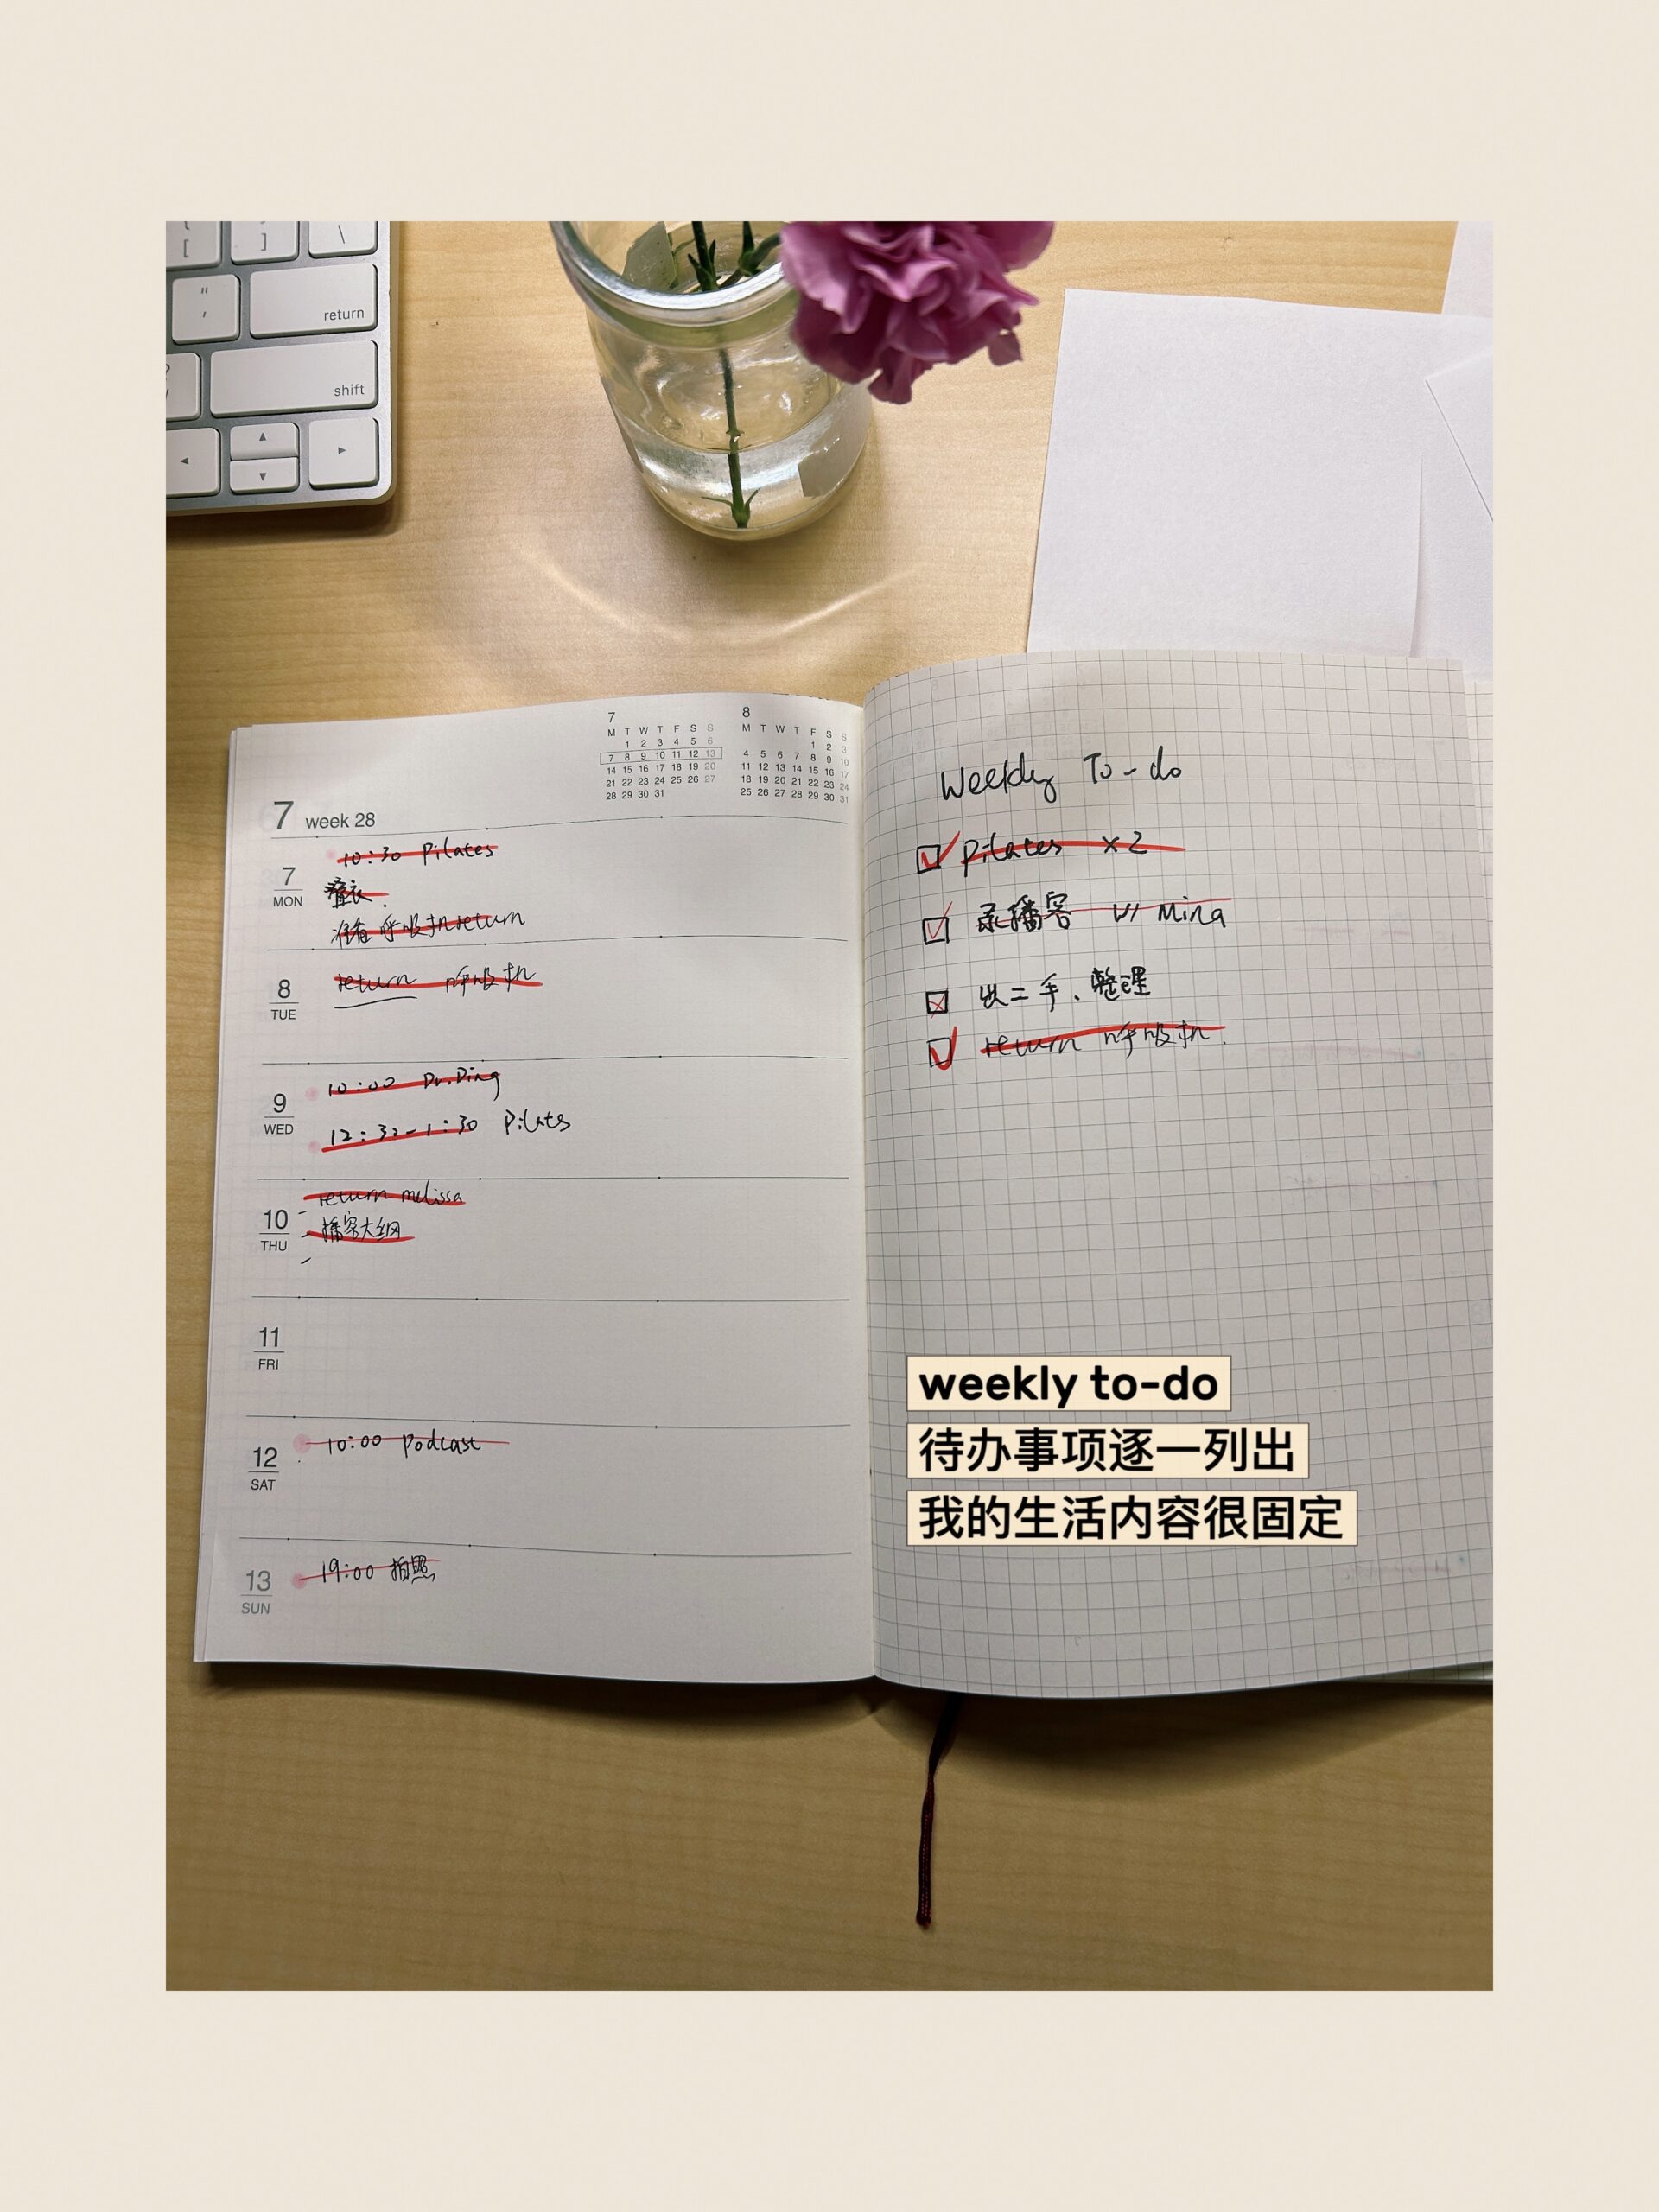 [ ] \
" '
return
shift
7 8
M T W T F S S M T W T F S S
1 2 3 4 5 6 1 2 3
7 8 9 10 11 12 13 4 5 6 7 8 9 10
14 15 16 17 18 19 20 11 12 13 14 15 16 17
21 22 23 24 25 26 27 18 19 20 21 22 23 24
28 29 30 31 25 26 27 28 29 30 31
7 week 28
10:30 Pilates
7 MON
叠衣.
准备呼吸机return
8 TUE
return 呼吸机
9 WED
10:00 Dr.Ding
12:30-1:30 Pilats
10 THU
return melissa
播客大纲
11 FRI
12 SAT
10:00 Podcast
13 SUN
19:00 拍照
Weekly To-do
Pilates x2
录播客 w/ Mina
出二手、整理
return 呼吸机.
weekly to-do
待办事项逐一列出
我的生活内容很固定